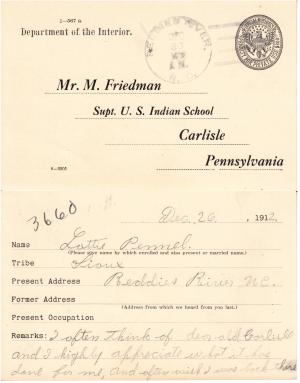 1—367 a
Department of the Interior.
REDDIES RIVER,
N. C.
Mr. M. Friedman
Supt. U. S. Indian School
Carlisle
Pennsylvania
3660
Dec 26, 1912
Name Lottie Pennel.
(Please give name by which enrolled and also present or married name.)
Tribe Sioux
Present Address Reddies River NC.
Former Address
(Address from which we heard from you last.)
Present Occupation
Remarks: I often think of dear old Carlisle
and I highly appreciate what it has
done for me, and often wish I was back there